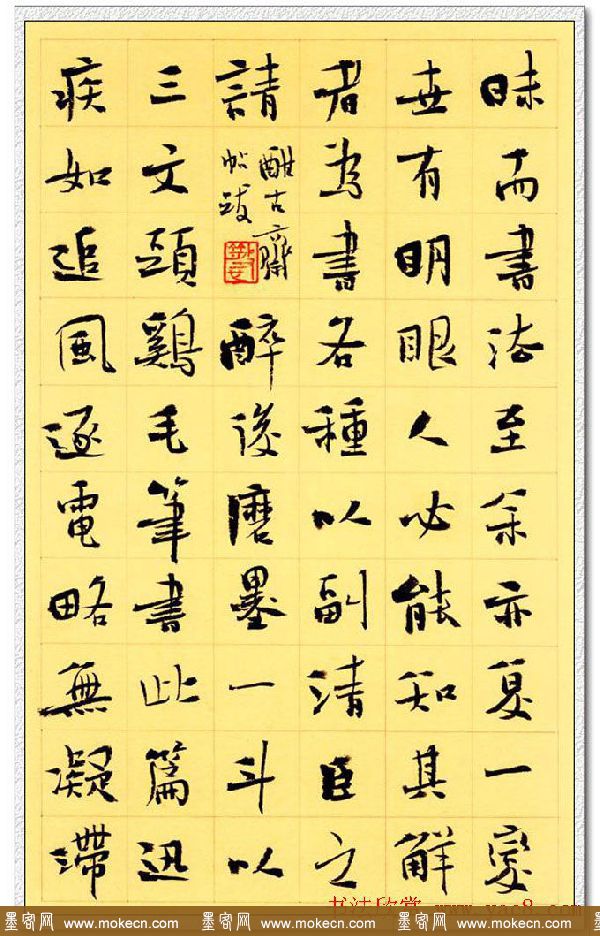 昧而書法至余亦复一變
世有明眼人必能知其解
者為書各種以副清臣之
請
酣古齋
帖跋
醉後磨墨一斗以
三文頭鷄毛筆書此篇迅
疾如追風逐電略無凝滯
书法欣赏 www.yac8.com
墨客网 www.mokecn.com 墨客网 www.mokecn.com 墨客网 www.mokecn.com